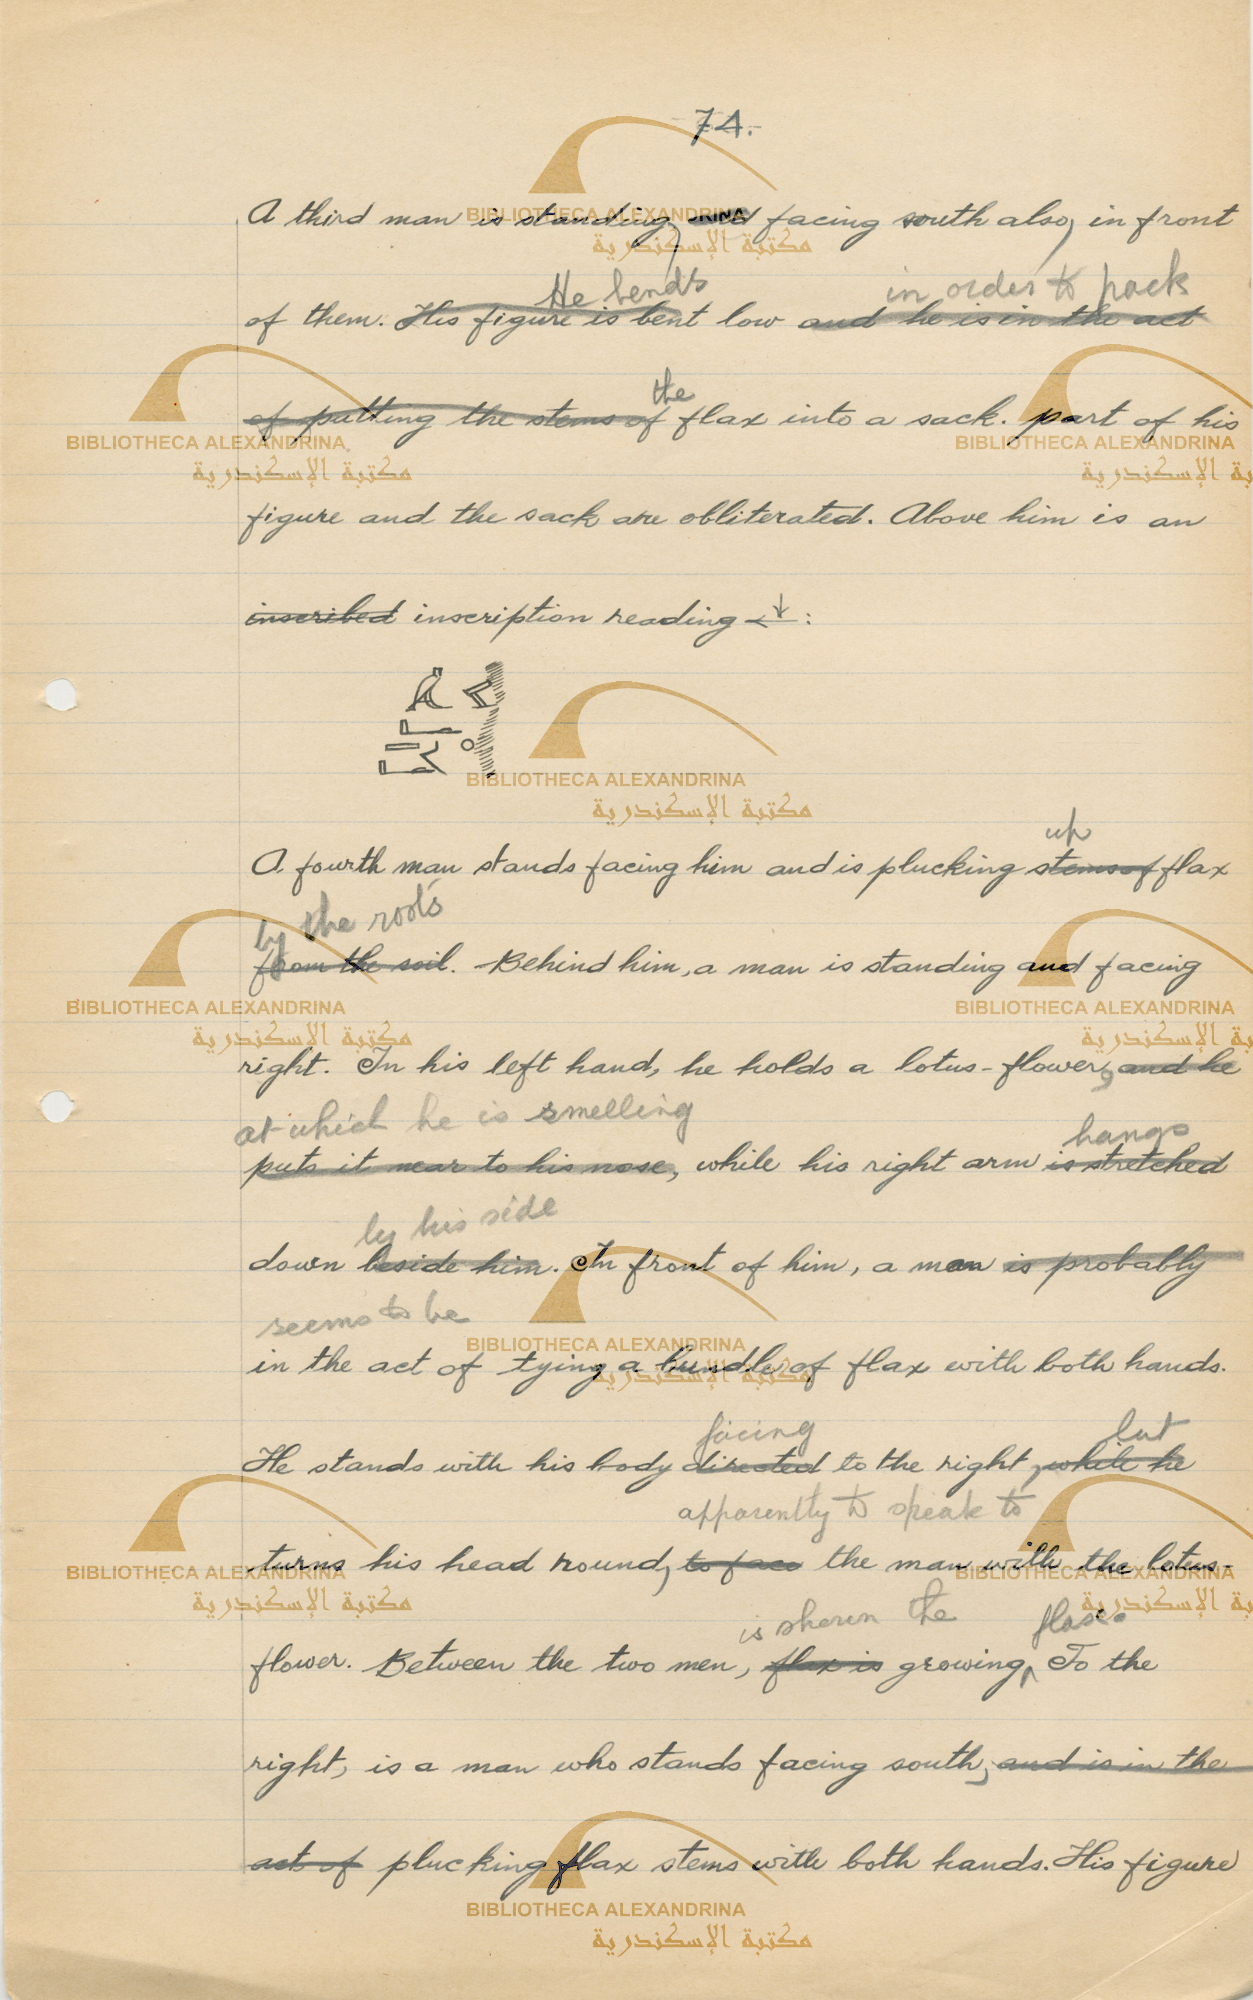 74.
A third man is standing, and facing south also, in front
He bends in order to pack
of them. His figure is bent low and he is in the act
the
of putting the stems of flax into a sack. part of his
figure and the sack are obliterated. Above him is an
inscribed inscription reading ←↓:
up
A fourth man stands facing him and is plucking stems of flax
by the roots
from the soil. Behind him, a man is standing and facing
right. In his left hand, he holds a lotus-flower, and he
at which he is smelling
hangs
puts it near to his nose, while his right arm is stretched
by his side
down beside him. In front of him, a man is probably
seems to be
in the act of tying a bundle of flax with both hands.
facing but
He stands with his body directed to the right, while he
apparently to speak to
turns his head round, to face the man with the lotus-
is shown the flax.
flower. Between the two men, flax is growing, To the
right, is a man who stands facing south, and is in the
act of plucking flax stems with both hands. His figure
BIBLIOTHECA ALEXANDRINA
مكتبة الإسكندرية